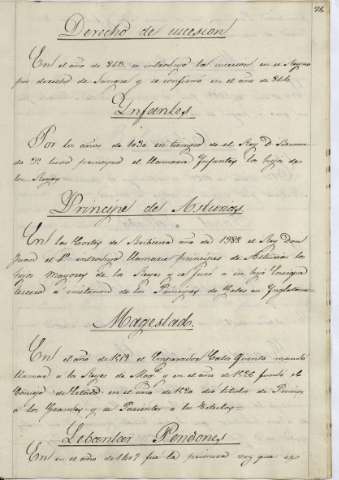 Derecho de sucesion
En el año de 843 se introdujo la sucesion en el Reyno
por derecho de Sangre y se confirmó en el año de
Ynfantes
Por los años de 1030 en tiempo de el Rey Dn
tuvo principio el llamarse Ynfantes los hijos de
los Reyes
Principe de Asturias
En las Cortes de año de 1388 el Rey Don
Juan el 1º introdujo llamarse principes de Asturias los
hijos mayores de los Reyes y se Juró a su hijo Enrique
tercero a imitacion de los Principes de Gales en Ynglaterra
Magestad
En el año de 1519 el Emperador Carlo Quinto mando
llamar a los Reyes de Mag.d y en el año de 1526 fundo el
Consejo de Estado en el año de 1520 dio titulos de Primos
a los Grandes y de Parientes a los Titulos
Lebantar Pendones
En el año de 1407 fue la primera vez que se